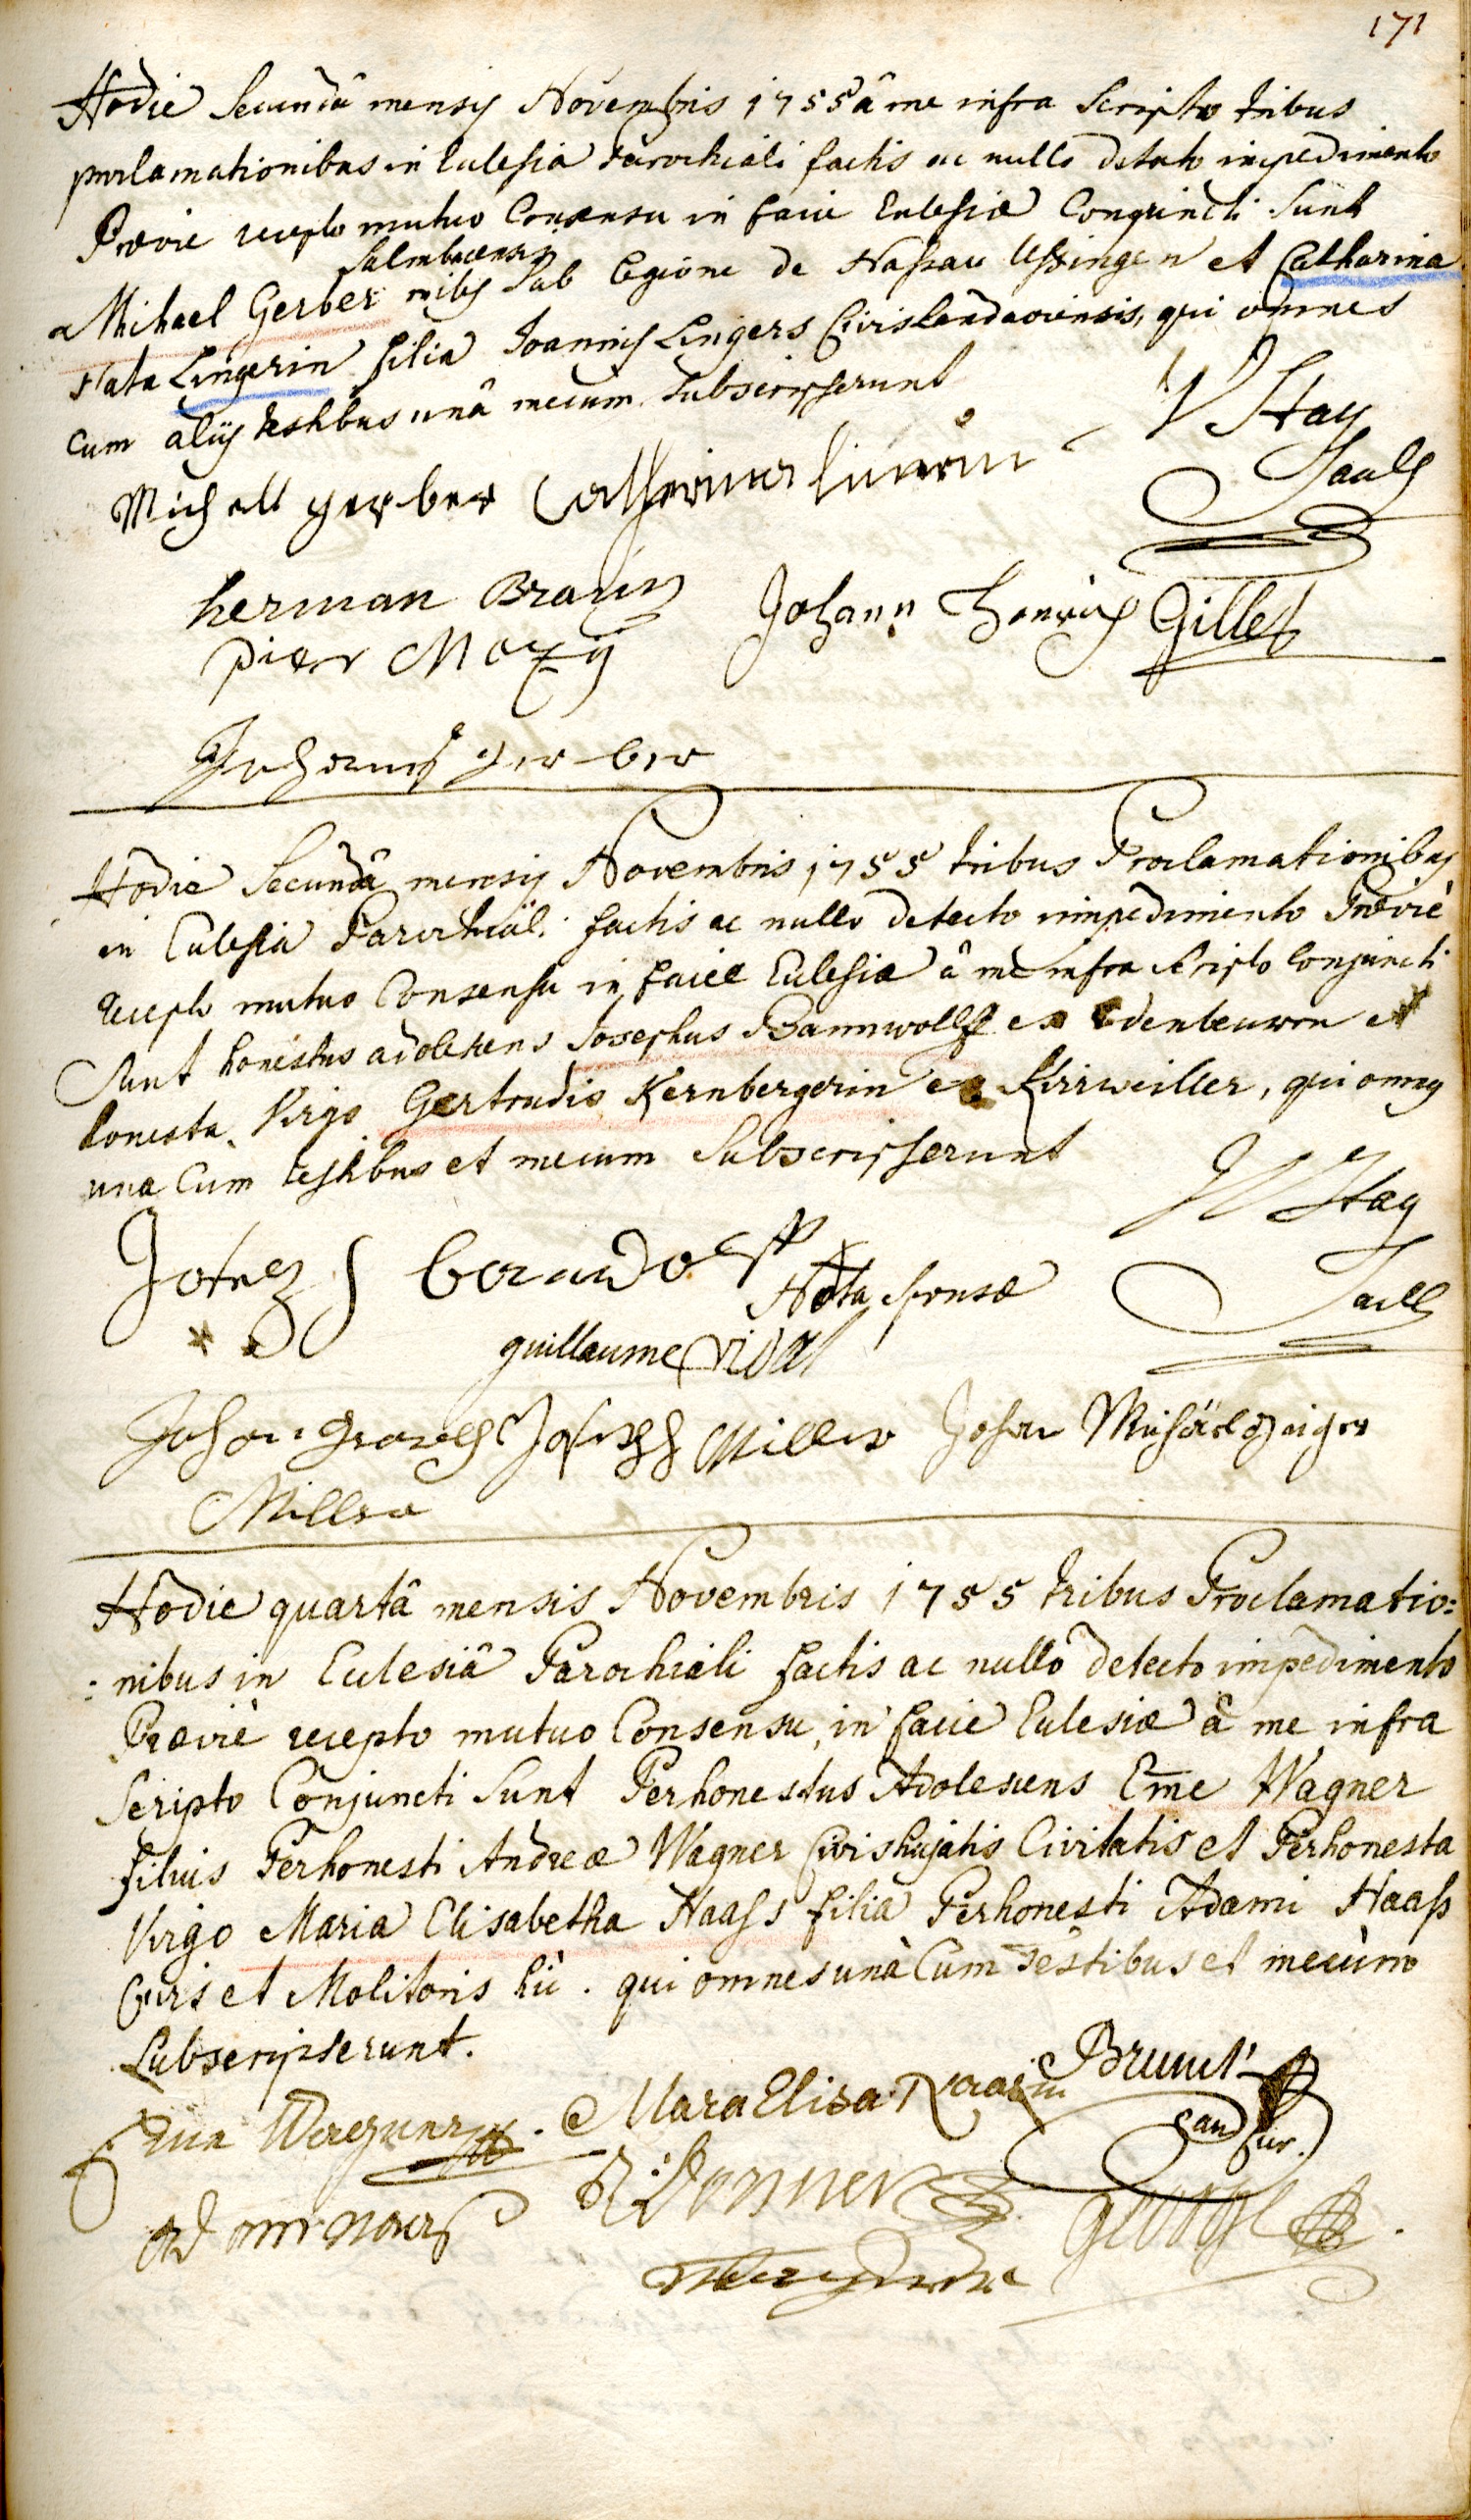 171
Hodie Secundâ mensis Novembris 1755 â me infra Scripto tribus
proclamationibus in Eclesia Parochiali factis ac nullo detecto impedimento
Prævie recepto mutuo Consensu in facie Eclesiæ Conjuncti Sunt
Salmbacensis
Michael Gerber miles Sub legione de Nassau Ussingen et Catharina
Nata Lingerin filia Joannis Lingers Civis Landaviensis, qui omnes
cum aliis testibus unâ mecum Subscripserunt
V Hay
Michall gerber Catherina
herman Braun Johann Henrich Gilles
pier
Johannes gerber
Hodie Secundâ mensis Novembris 1755 tribus Proclamationibus
in Eclesia Parochiali factis ac nullo detecto impedimento Prævie
recepto mutuo Consensu in facie Eclesiæ â me infra Scripto Conjuncti
Sunt honestus adolescens Josephus Bannwolff ex Edenbeuwren et
honesta Virgo Gertrudis Kernbergerin ex Kirrweiller, qui omnes
una Cum testibus et mecum Subscripserunt
Hay
Nota sponsæ
guillaume vidal
Johan Joseph Miller Johan Michael
Miller
Hodie quartâ mensis Novembris 1755 tribus Proclamatio=
=nibus in Eclesiâ Parochiali factis ac nullo detecto impedimento
Præviè recepto mutuo Consensu, in facie Eclesiæ â me infra
Scripto Conjuncti Sunt Perhonestus Adolescens Eme Wagner
filius Perhonesti Andreæ Wagner Civis hujatis Civitatis et Perhonesta
Virgo Maria Elisabetha Haass filia Perhonesti Adami Haass
Civis et Molitoris hic. qui omnes unà Cum Testibus et mecum
Subscripserunt.
Mara Elisa Brunck
george